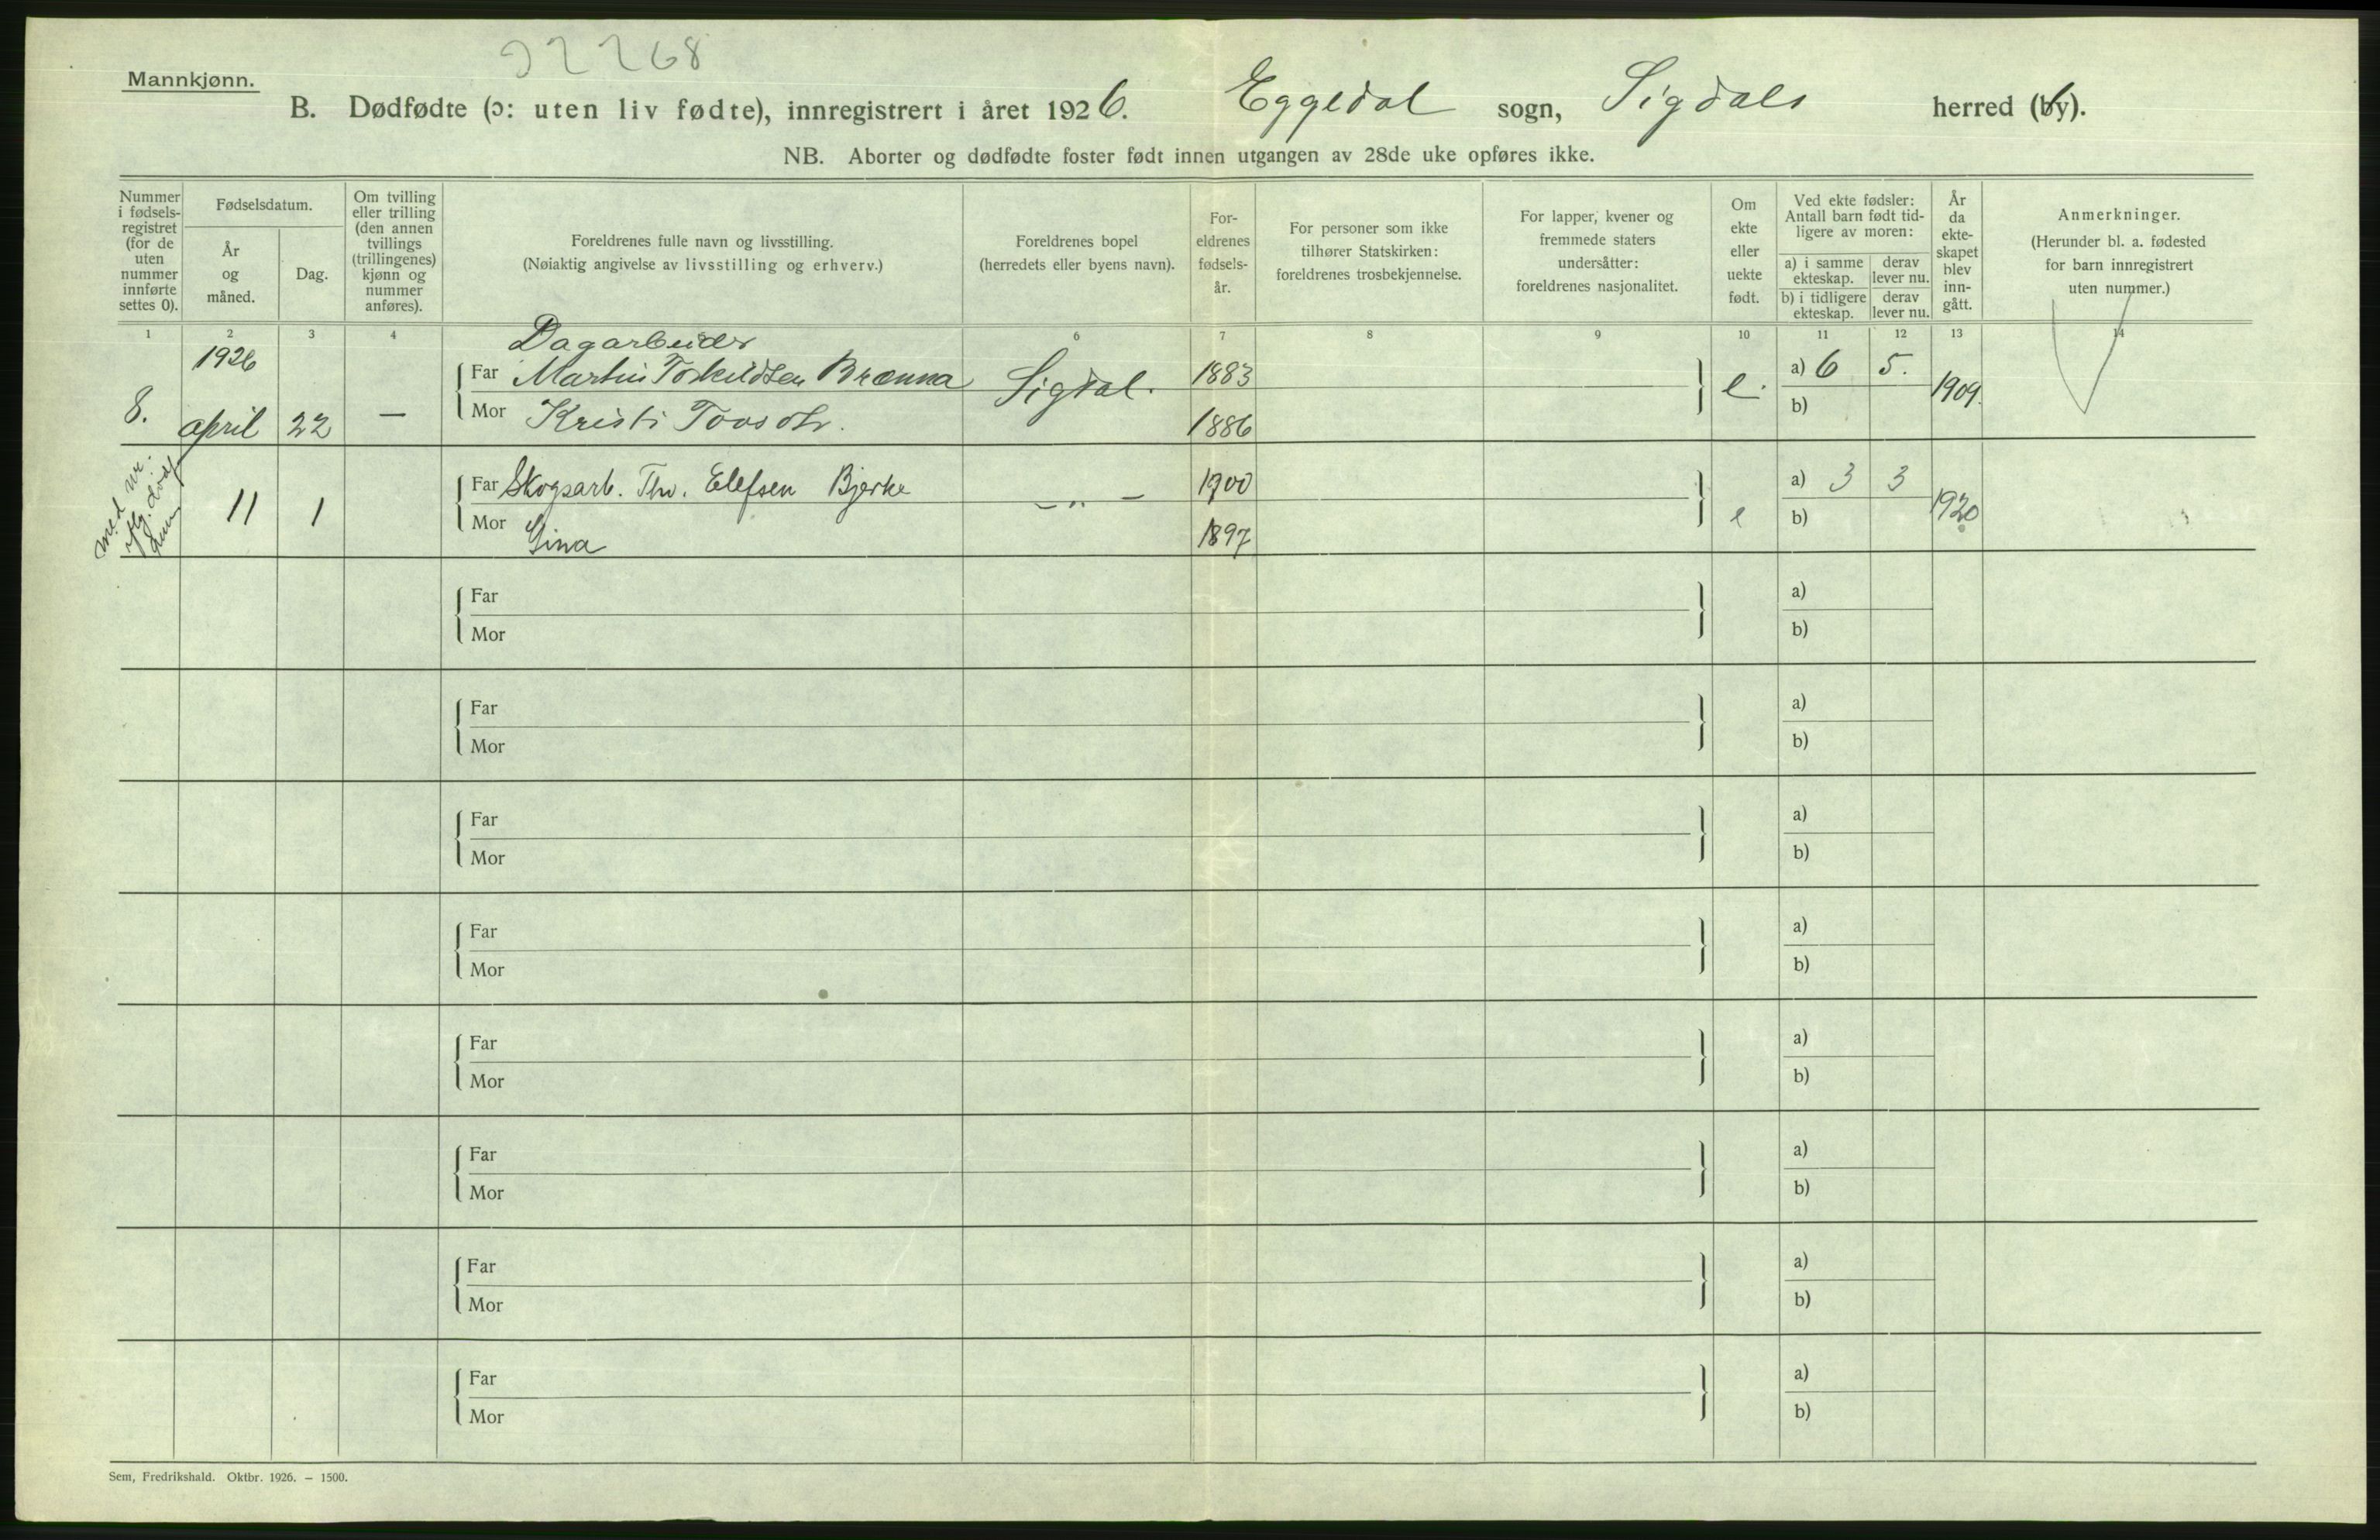 Mannkjønn.
22268
B. Dødfødte (ɔ: uten liv fødte), innregistrert i året 1926. Eggedal sogn, Sigdals herred (by).
NB. Aborter og dødfødte foster født innen utgangen av 28de uke opføres ikke.
Nummer i fødsels-registret (for de uten nummer innførte settes 0).
Fødselsdatum.
År og måned.
Dag.
Om tvilling eller trilling (den annen tvillings (trillingenes) kjønn og nummer anføres).
Foreldrenes fulle navn og livsstilling.
(Nøiaktig angivelse av livsstilling og erhverv.)
Foreldrenes bopel
(herredets eller byens navn).
For-eldrenes fødsels-år.
For personer som ikke tilhører Statskirken: foreldrenes trosbekjennelse.
For lapper, kvener og fremmede staters undersåtter: foreldrenes nasjonalitet.
Om ekte eller uekte født.
Ved ekte fødsler: Antall barn født tid-ligere av moren:
a) i samme ekteskap. derav lever nu.
b) i tidligere ekteskap. derav lever nu.
År da ekte-skapet blev inn-gått.
Anmerkninger.
(Herunder bl. a. fødested for barn innregistrert uten nummer.)
1 2 3 4 6 7 8 9 10 11 12 13 14
1926 Dagarbeider
Far Martin Torkildsen Brænna Sigdal. 1883 e. a) 6 5. 1909.
8. april 22 — Mor Kristi Toresdtr. 1886 b)
med nr.
Far Skogsarb. Thv. Elefsen Bjerke — „ — 1900 a) 3 3 1920
11 1 Mor Gina 1897 e b)
Far a)
Mor b)
Far a)
Mor b)
Far a)
Mor b)
Far a)
Mor b)
Far a)
Mor b)
Far a)
Mor b)
Far a)
Mor b)
Far a)
Mor b)
Sem, Fredrikshald. Oktbr. 1926. — 1500.